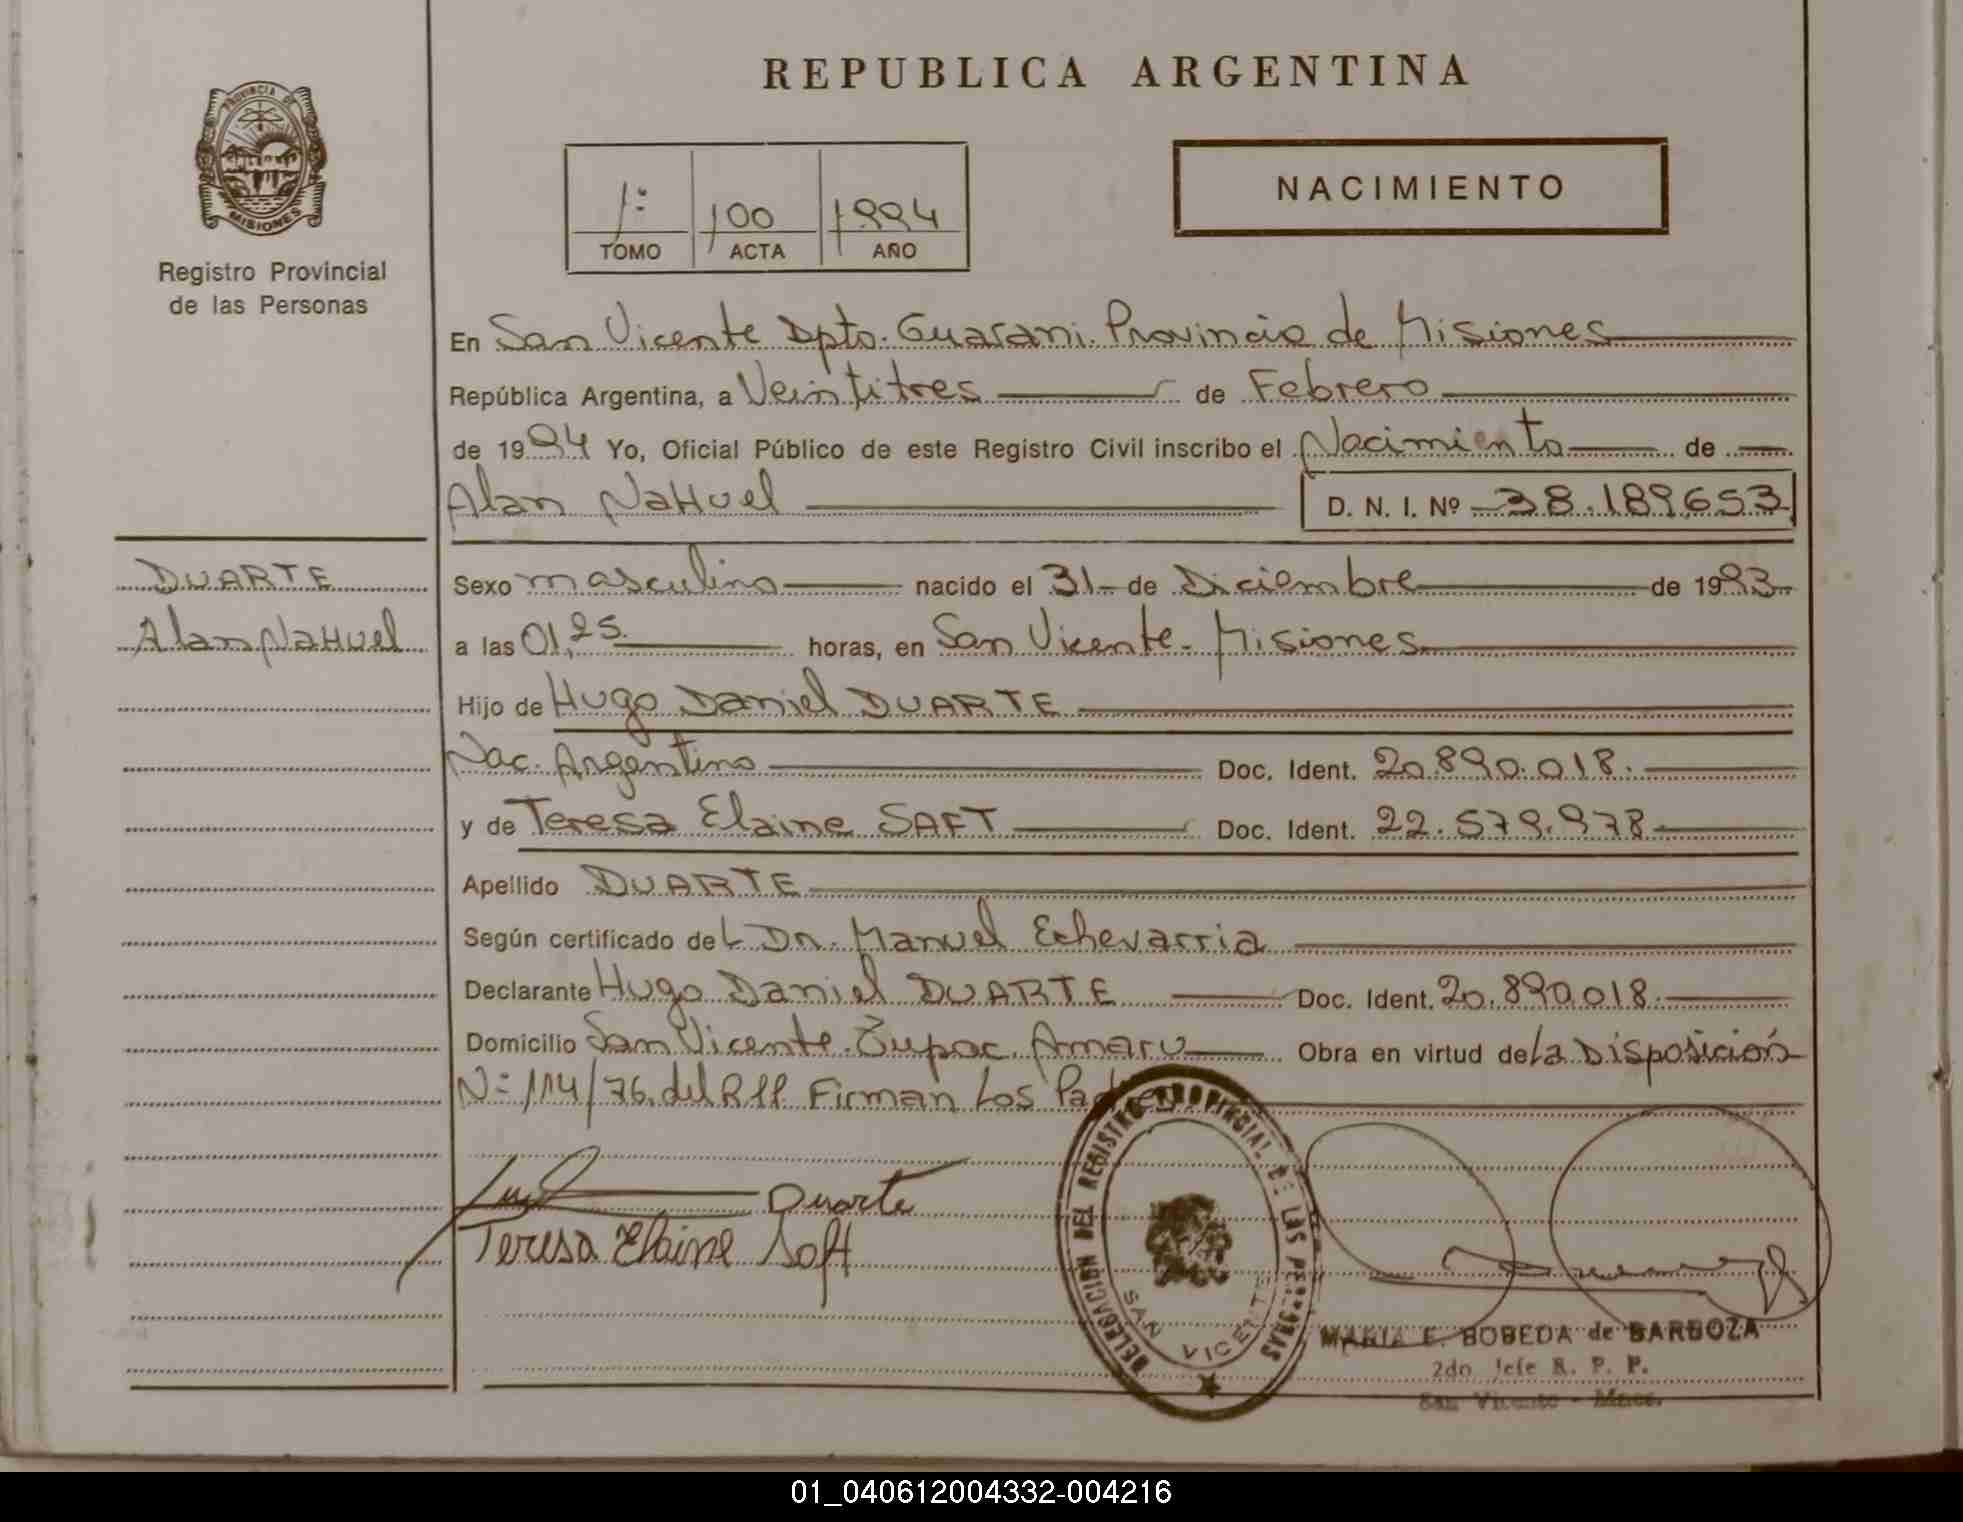 REPUBLICA ARGENTINA
PROVINCIA DE
MISIONES
Registro Provincial
de las Personas
1º 100 1994
TOMO ACTA AÑO
NACIMIENTO
En San Vicente Dpto. Guarani. Provincia de Misiones
República Argentina, a Veintitres de Febrero
de 1994 Yo, Oficial Público de este Registro Civil inscribo el Nacimiento de
Alan NaHuel D. N. I. Nº 38.189653
DUARTE
Alan NaHuel
Sexo masculino nacido el 31 de Diciembre de 1993
a las 01,25 horas, en San Vicente - Misiones
Hijo de Hugo Daniel DUARTE
Nac. Argentino Doc. Ident. 20.890.018.
y de Teresa Elaine SAFT Doc. Ident. 22.579.978
Apellido DUARTE
Según certificado del Dr. Manuel Echevarria
Declarante Hugo Daniel DUARTE Doc. Ident. 20.890.018
Domicilio San Vicente. Tupac Amaru Obra en virtud de La Disposición
Nº 114/76 del RPP. Firman Los Padres
Duarte
Teresa Elaine Saft
DELEGACION DEL REGISTRO PROVINCIAL DE LAS PERSONAS
SAN VICENTE
MARIA E. BOBEDA de BARBOZA
2do Jefe R. P. P.
San Vicente - Mnes.
01_040612004332-004216